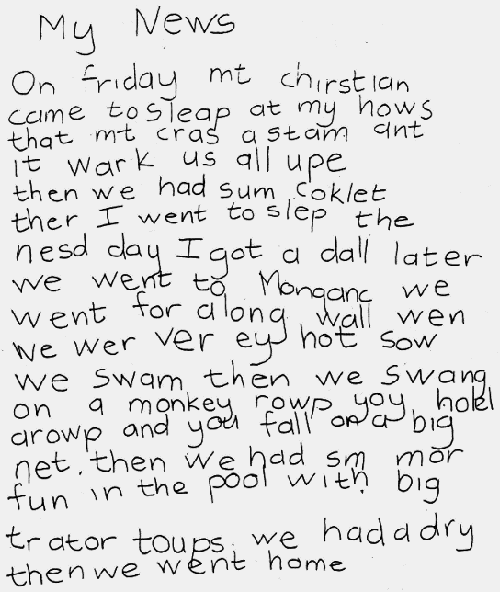 My News
On friday mt chirstian
came to sleap at my hows
that mt cras a stam ant
it wark us all upe
then we had sum coklet
ther I went to slep the
nesd day I got a dall later
we went to Monganc we
went for along wall wen
we wer ver ey hot sow
we swam then we swang
on a monkey rowp yoy holel
arowp and you fall on a big
net. then we had sm mor
fun in the pool with big
trator toups. we had a dry
then we went home